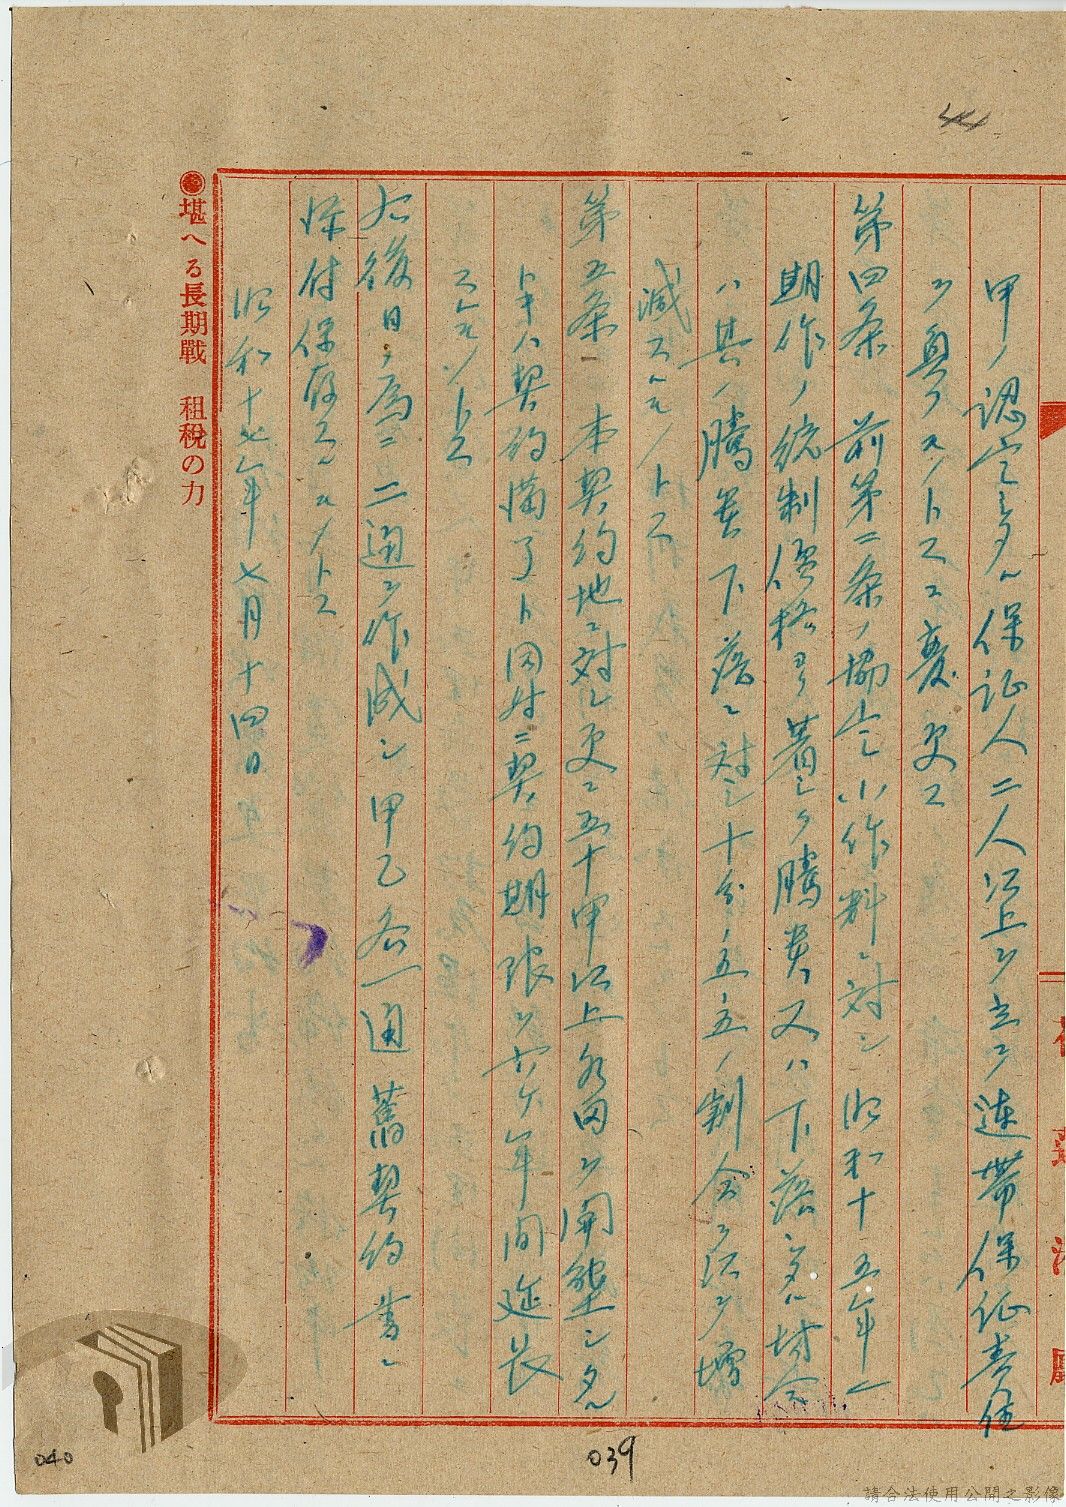 甲ノ認定シタル保証人二人以上ヲ立テ連帯保証責任
ヲ負フモノトスニ変更ス
第四条 前第二条ノ協定小作料ニ対シ昭和十五年一
期作ノ統制価格ヨリ著シク騰貴又ハ下落シタル場合
ハ其ノ騰貴下落ニ対シ十分ノ五五ノ割合ヲ以テ増
減スルモノトス
第五条 本契約地ニ対シ更ニ五十甲以上水田ヲ開墾シタル
トキハ契約満了ト同時ニ契約期限ヲ六ケ年間延長
スルモノトス
右後日ノ為ニ二通ヲ作成シ甲乙各一通舊契約書ニ
添付保存スルモノトス
昭和十七年七月十四日
堪へる長期戰 租税の力
039
040
請合法使用公開之影像